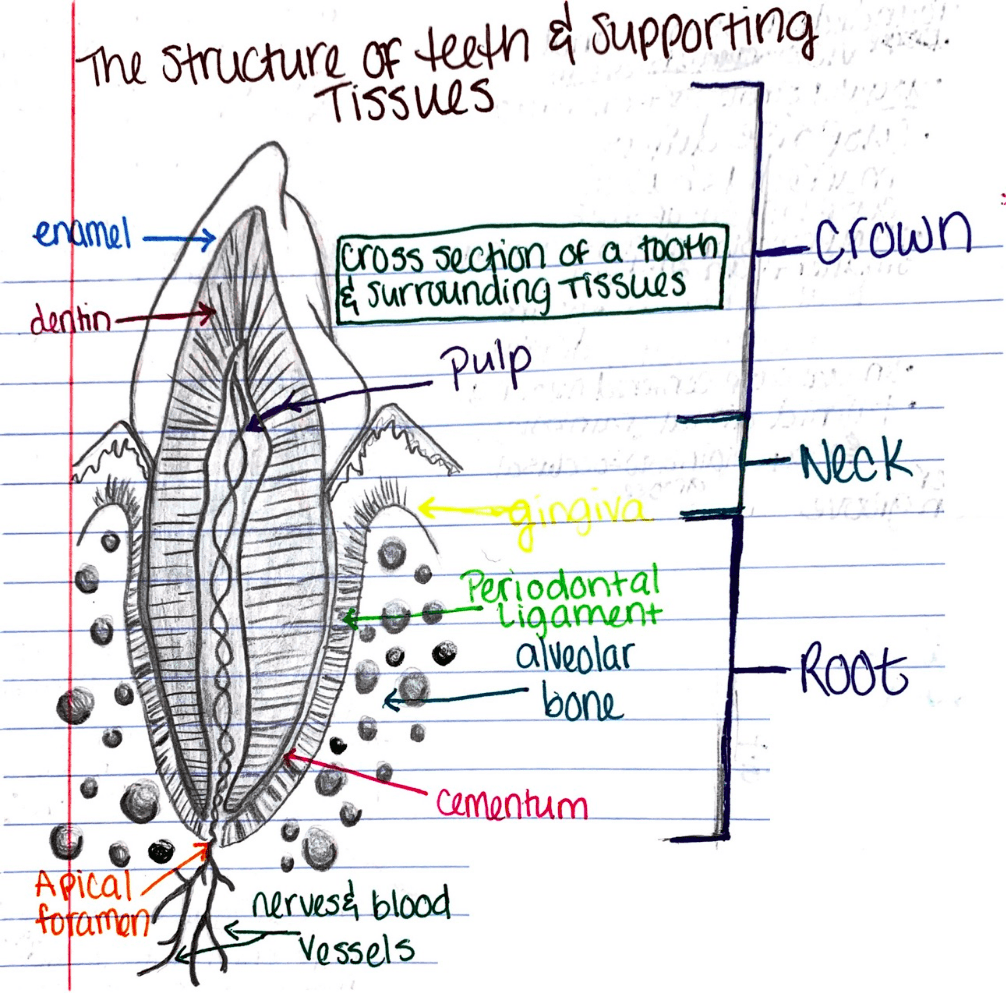 The structure of teeth & supporting
Tissues
enamel
cross section of a tooth
& surrounding Tissues
Crown
dentin
Pulp
Neck
gingiva
Periodontal
Ligament
alveolar
bone
Root
cementum
Apical
foramen
nerves & blood
vessels